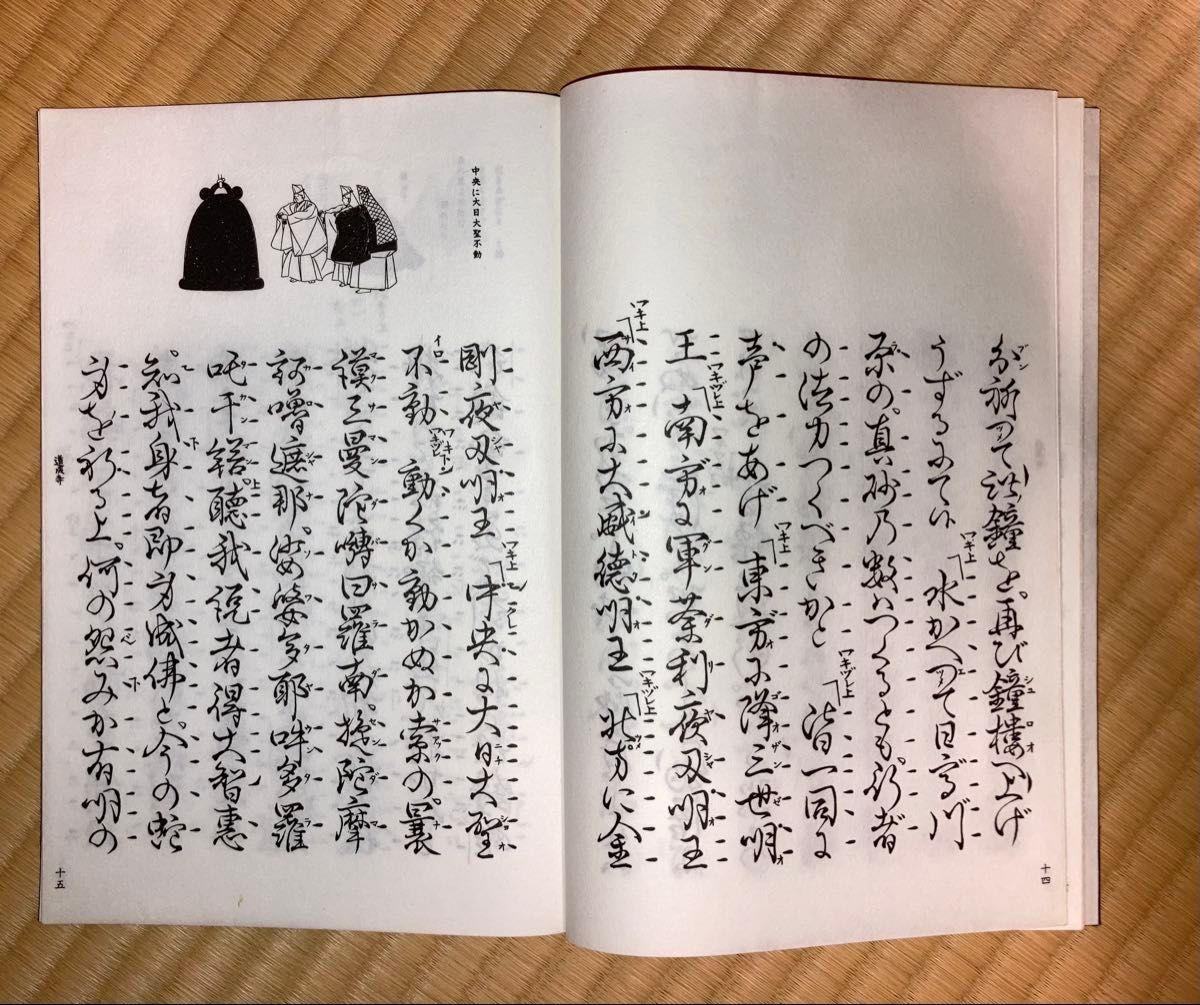 分祈つて此鐘を。再び鐘樓へ上げ
うずるにて候 ワキ上 水かへつて日高川
原の。真砂乃数はつくるとも。行者
の法力つくべきかと ワキヅレ上 皆一同に
声をあげ ワキ上 東方に降三世明
王 ワキヅレ上 南方に軍荼利夜叉明王
ワキ上 西方に大威徳明王 ワキヅレ上 北方に金
十四
中央に大日大聖不動
剛夜叉明王 ワキ上 中央に大日大聖
不動 動くか動かぬか索の。曩
謨三曼陀嚩曰羅南。旋陀摩
訶嚕遮那。娑婆多耶吽多羅
吒干𤚥聽我説者得大智恵
知我身者即身成佛と。今の蛇
身を祈る上。何の怨みか有明の
道成寺
十五